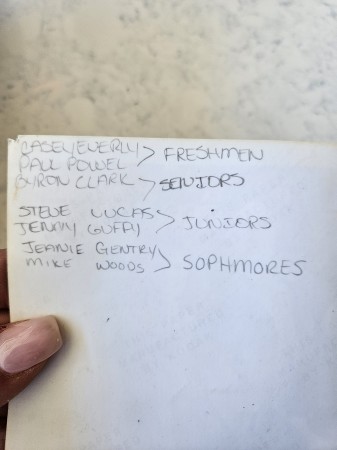 CASEY EVERLY
PAUL POWEL > FRESHMEN
BYRON CLARK > SENIORS
STEVE LUCAS
JENNY GUFFY > JUNIORS
JEANIE GENTRY
MIKE WOODS > SOPHMORES